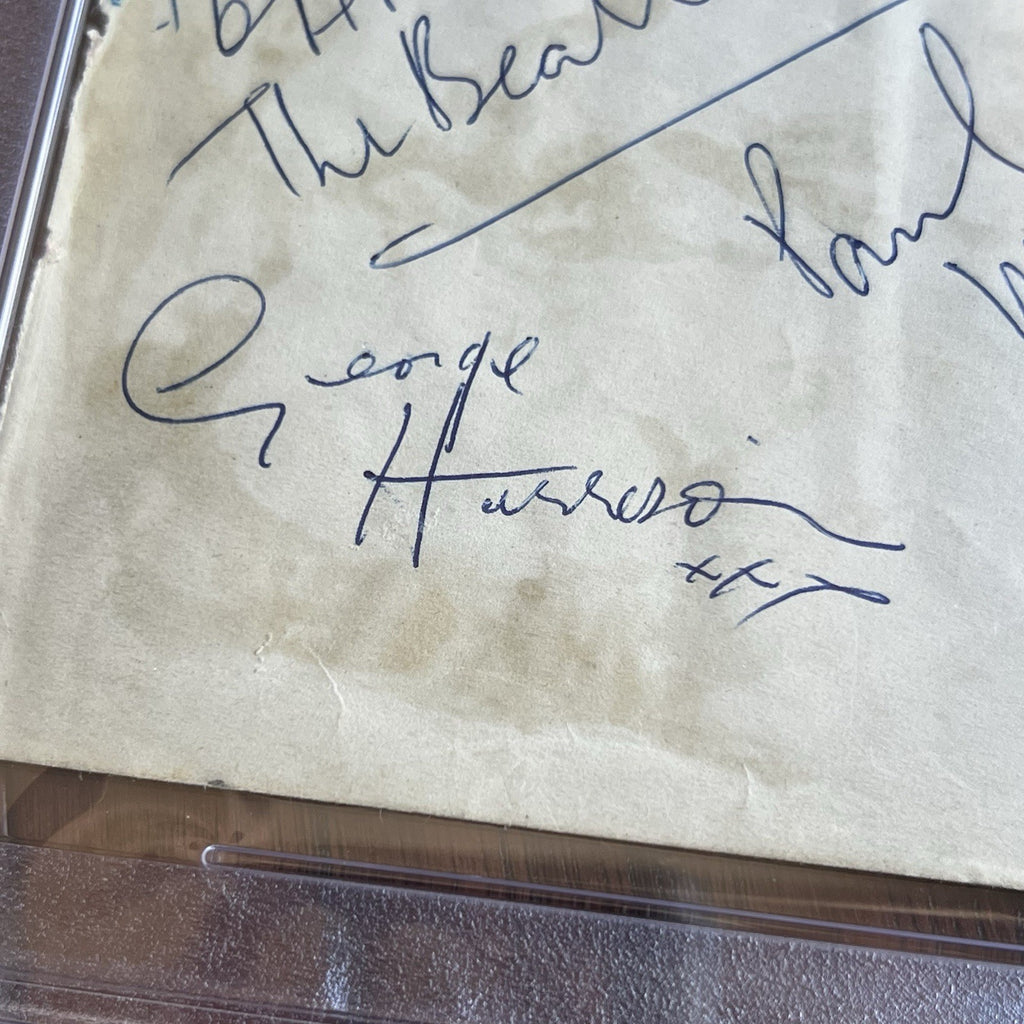 The Beatl
Paul
George
Harrison
xxx